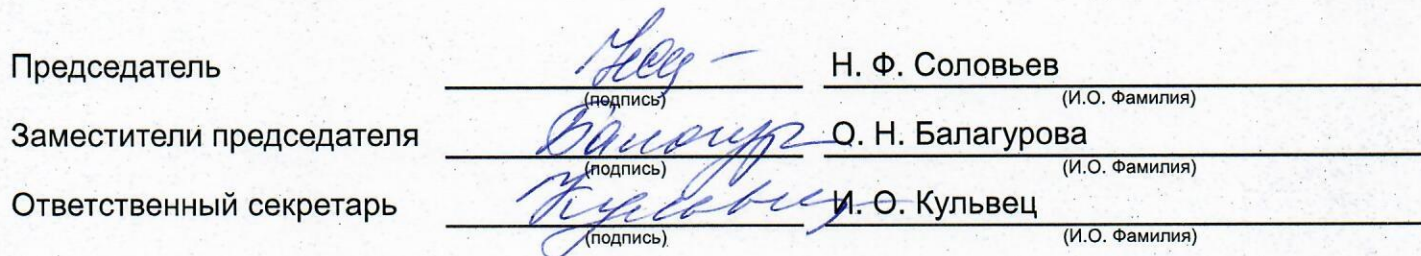 Председатель Н. Ф. Соловьев
(подпись) (И.О. Фамилия)
Заместители председателя О. Н. Балагурова
(подпись) (И.О. Фамилия)
Ответственный секретарь И. О. Кульвец
(подпись) (И.О. Фамилия)